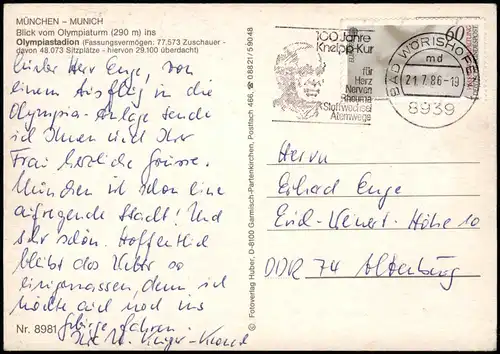 MÜNCHEN – MUNICH
Blick vom Olympiaturm (290 m) ins
Olympiastadion (Fassungsvermögen: 77.573 Zuschauer -
davon 48.073 Sitzplätze - hiervon 29.100 überdacht)
Lieber Herr Enge, von
einem Ausflug in die
Olympia-Anlage sende
ich Ihnen und Ihrer
Frau herzliche Grüsse.
München ist schon eine
aufregende Stadt! Und
sehr schön. Hoffentlich
bleibt das Wetter so
einigermassen, denn ich
möchte auch noch ins
Gebirge fahren.
Ihre U.
Nr. 8981
© Fotoverlag Huber, D-8100 Garmisch-Partenkirchen, Postfach 466, ☎ 08821/59048
100 Jahre
Kneipp-Kur
für
Herz
Nerven
Rheuma
Stoffwechsel
Atemwege
60
BAD WÖRISHOFEN
md
21.7.86-19
8939
Herrn
Erhard Enge
Höhe 10
DDR 74 Altenburg